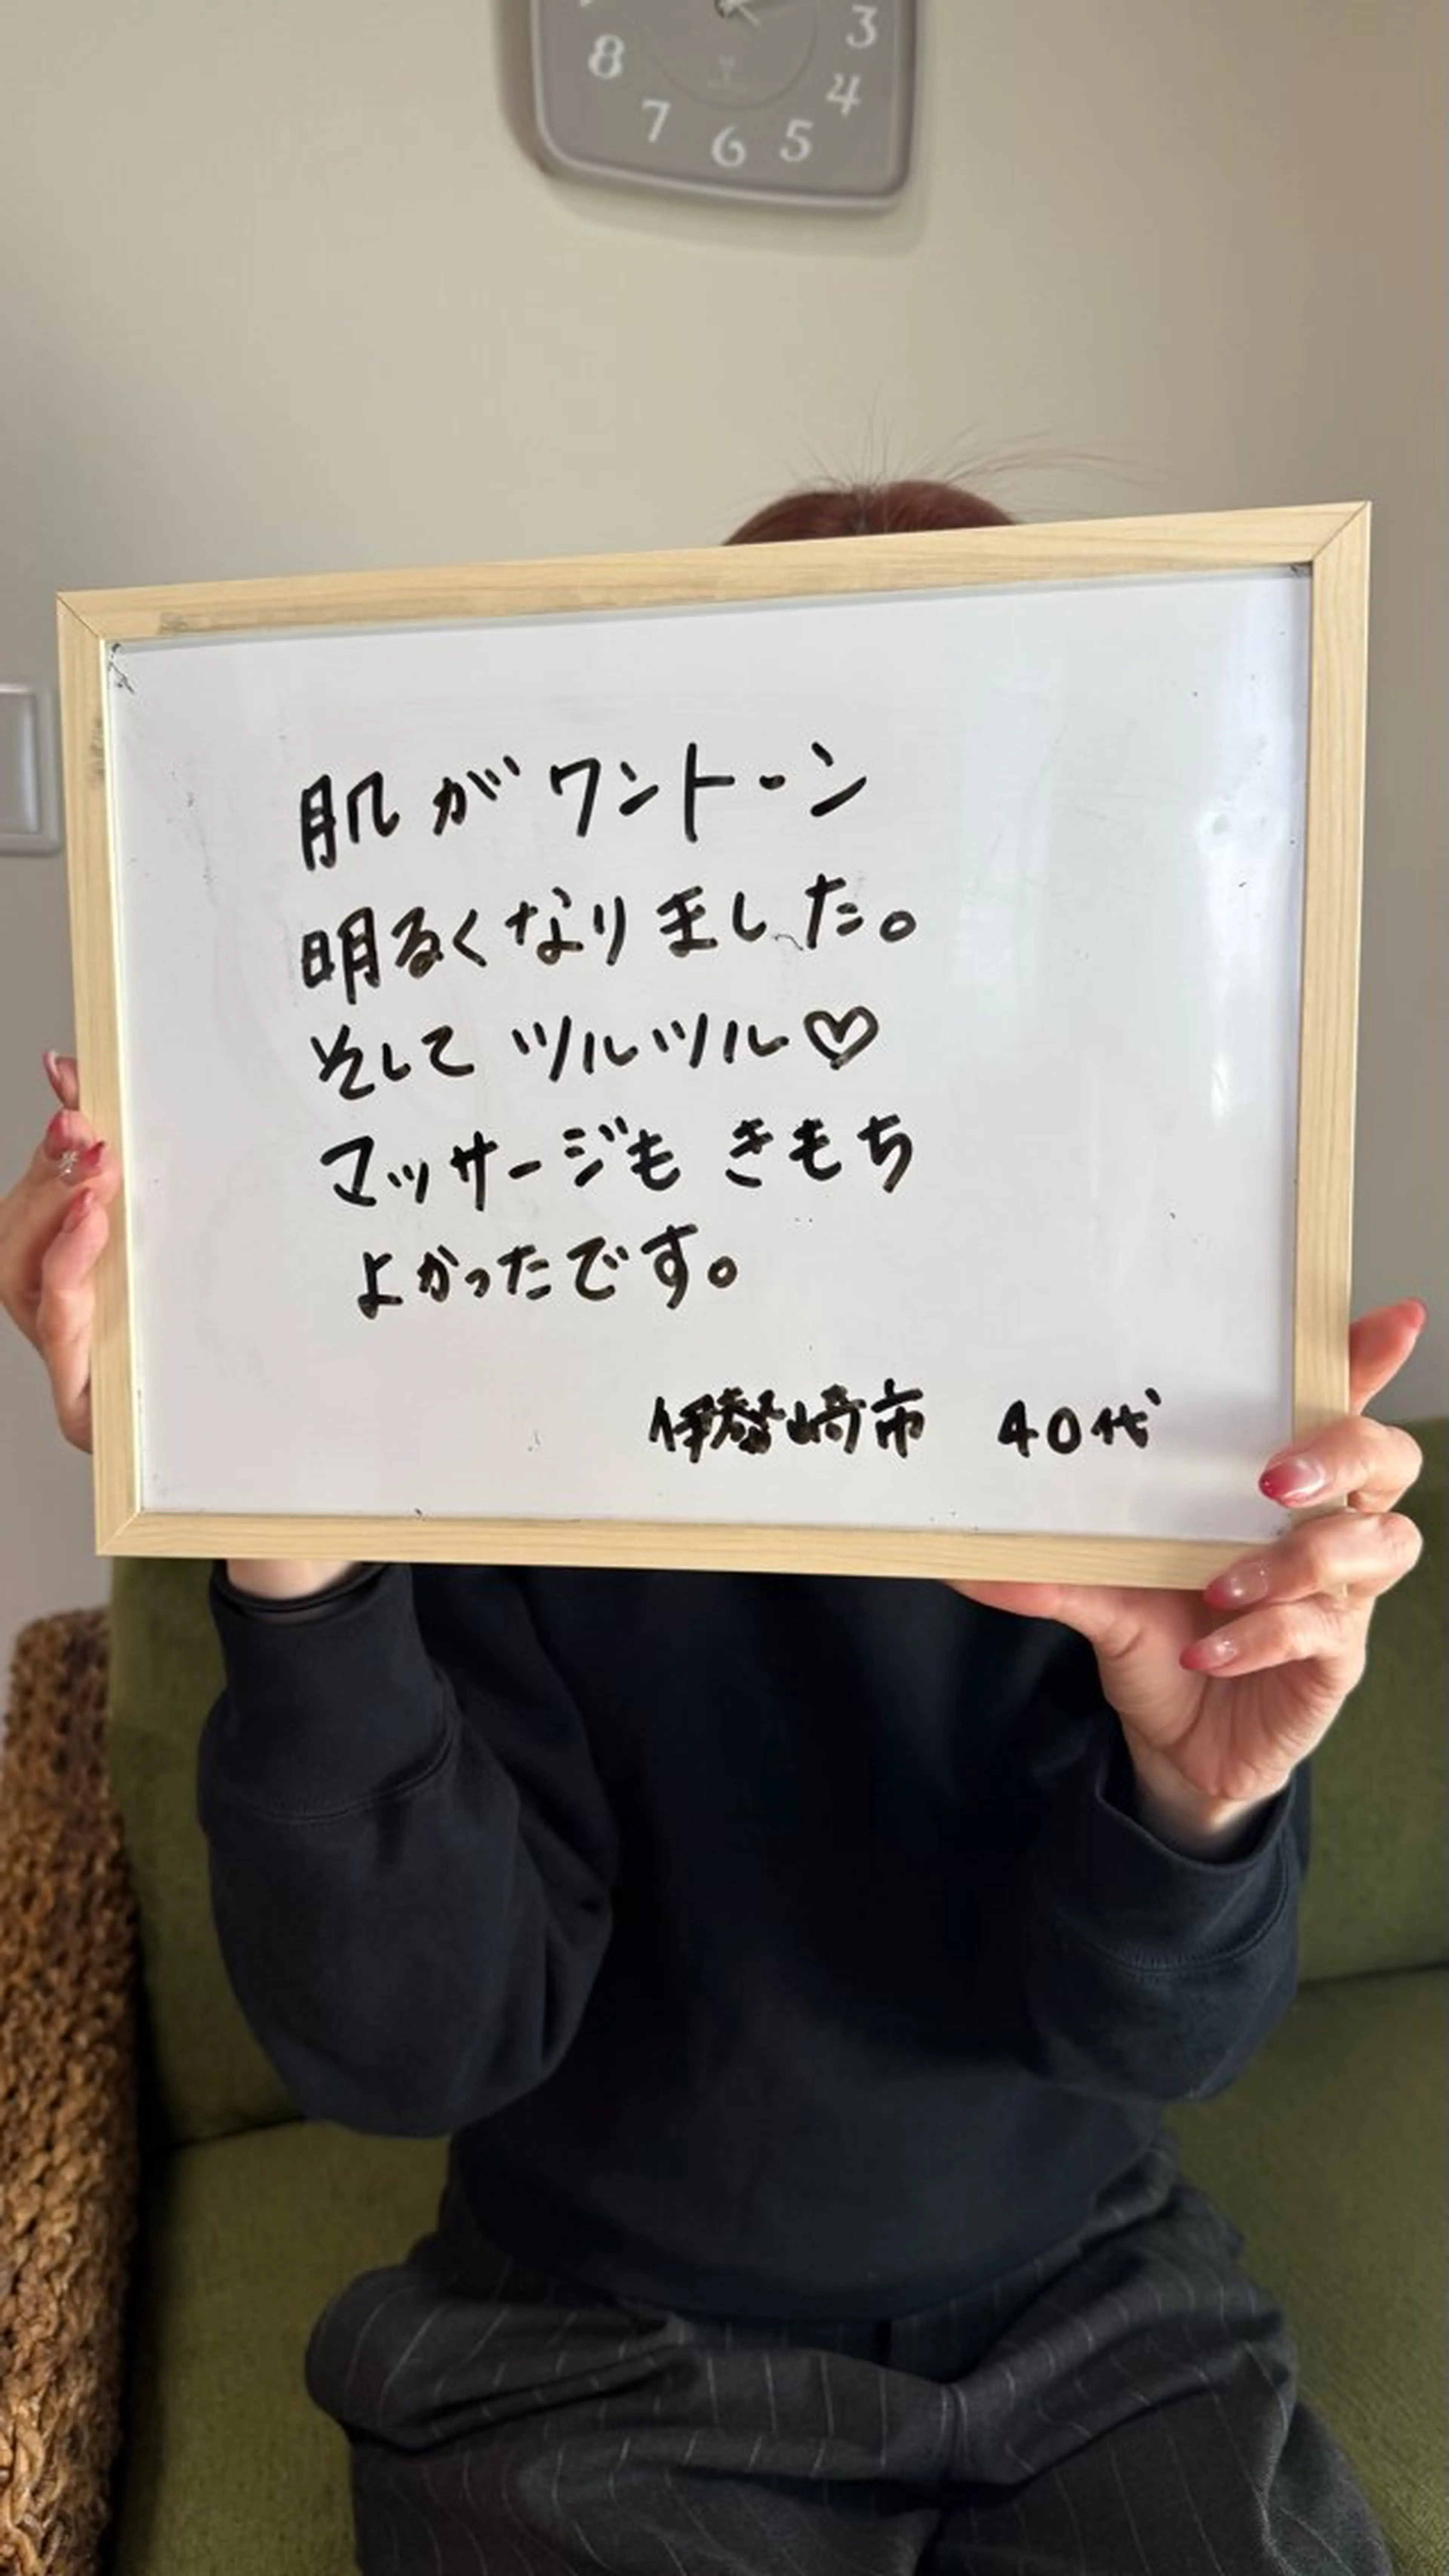 8 7 6 5 4 3
肌がワントーン
明るくなりました。
そしてツルツル♡
マッサージもきもち
よかったです。
伊勢崎市 40代